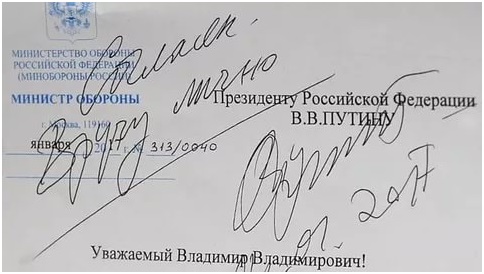 МИНИСТЕРСТВО ОБОРОНЫ
РОССИЙСКОЙ ФЕДЕРАЦИИ
(МИНОБОРОНЫ РОССИИ)
МИНИСТР ОБОРОНЫ
г. Москва, 119160
января 2017 г. № 313/0040
Согласен.
Вручу лично
Президенту Российской Федерации
В.В.ПУТИНУ
01. 2017
Уважаемый Владимир Владимирович!